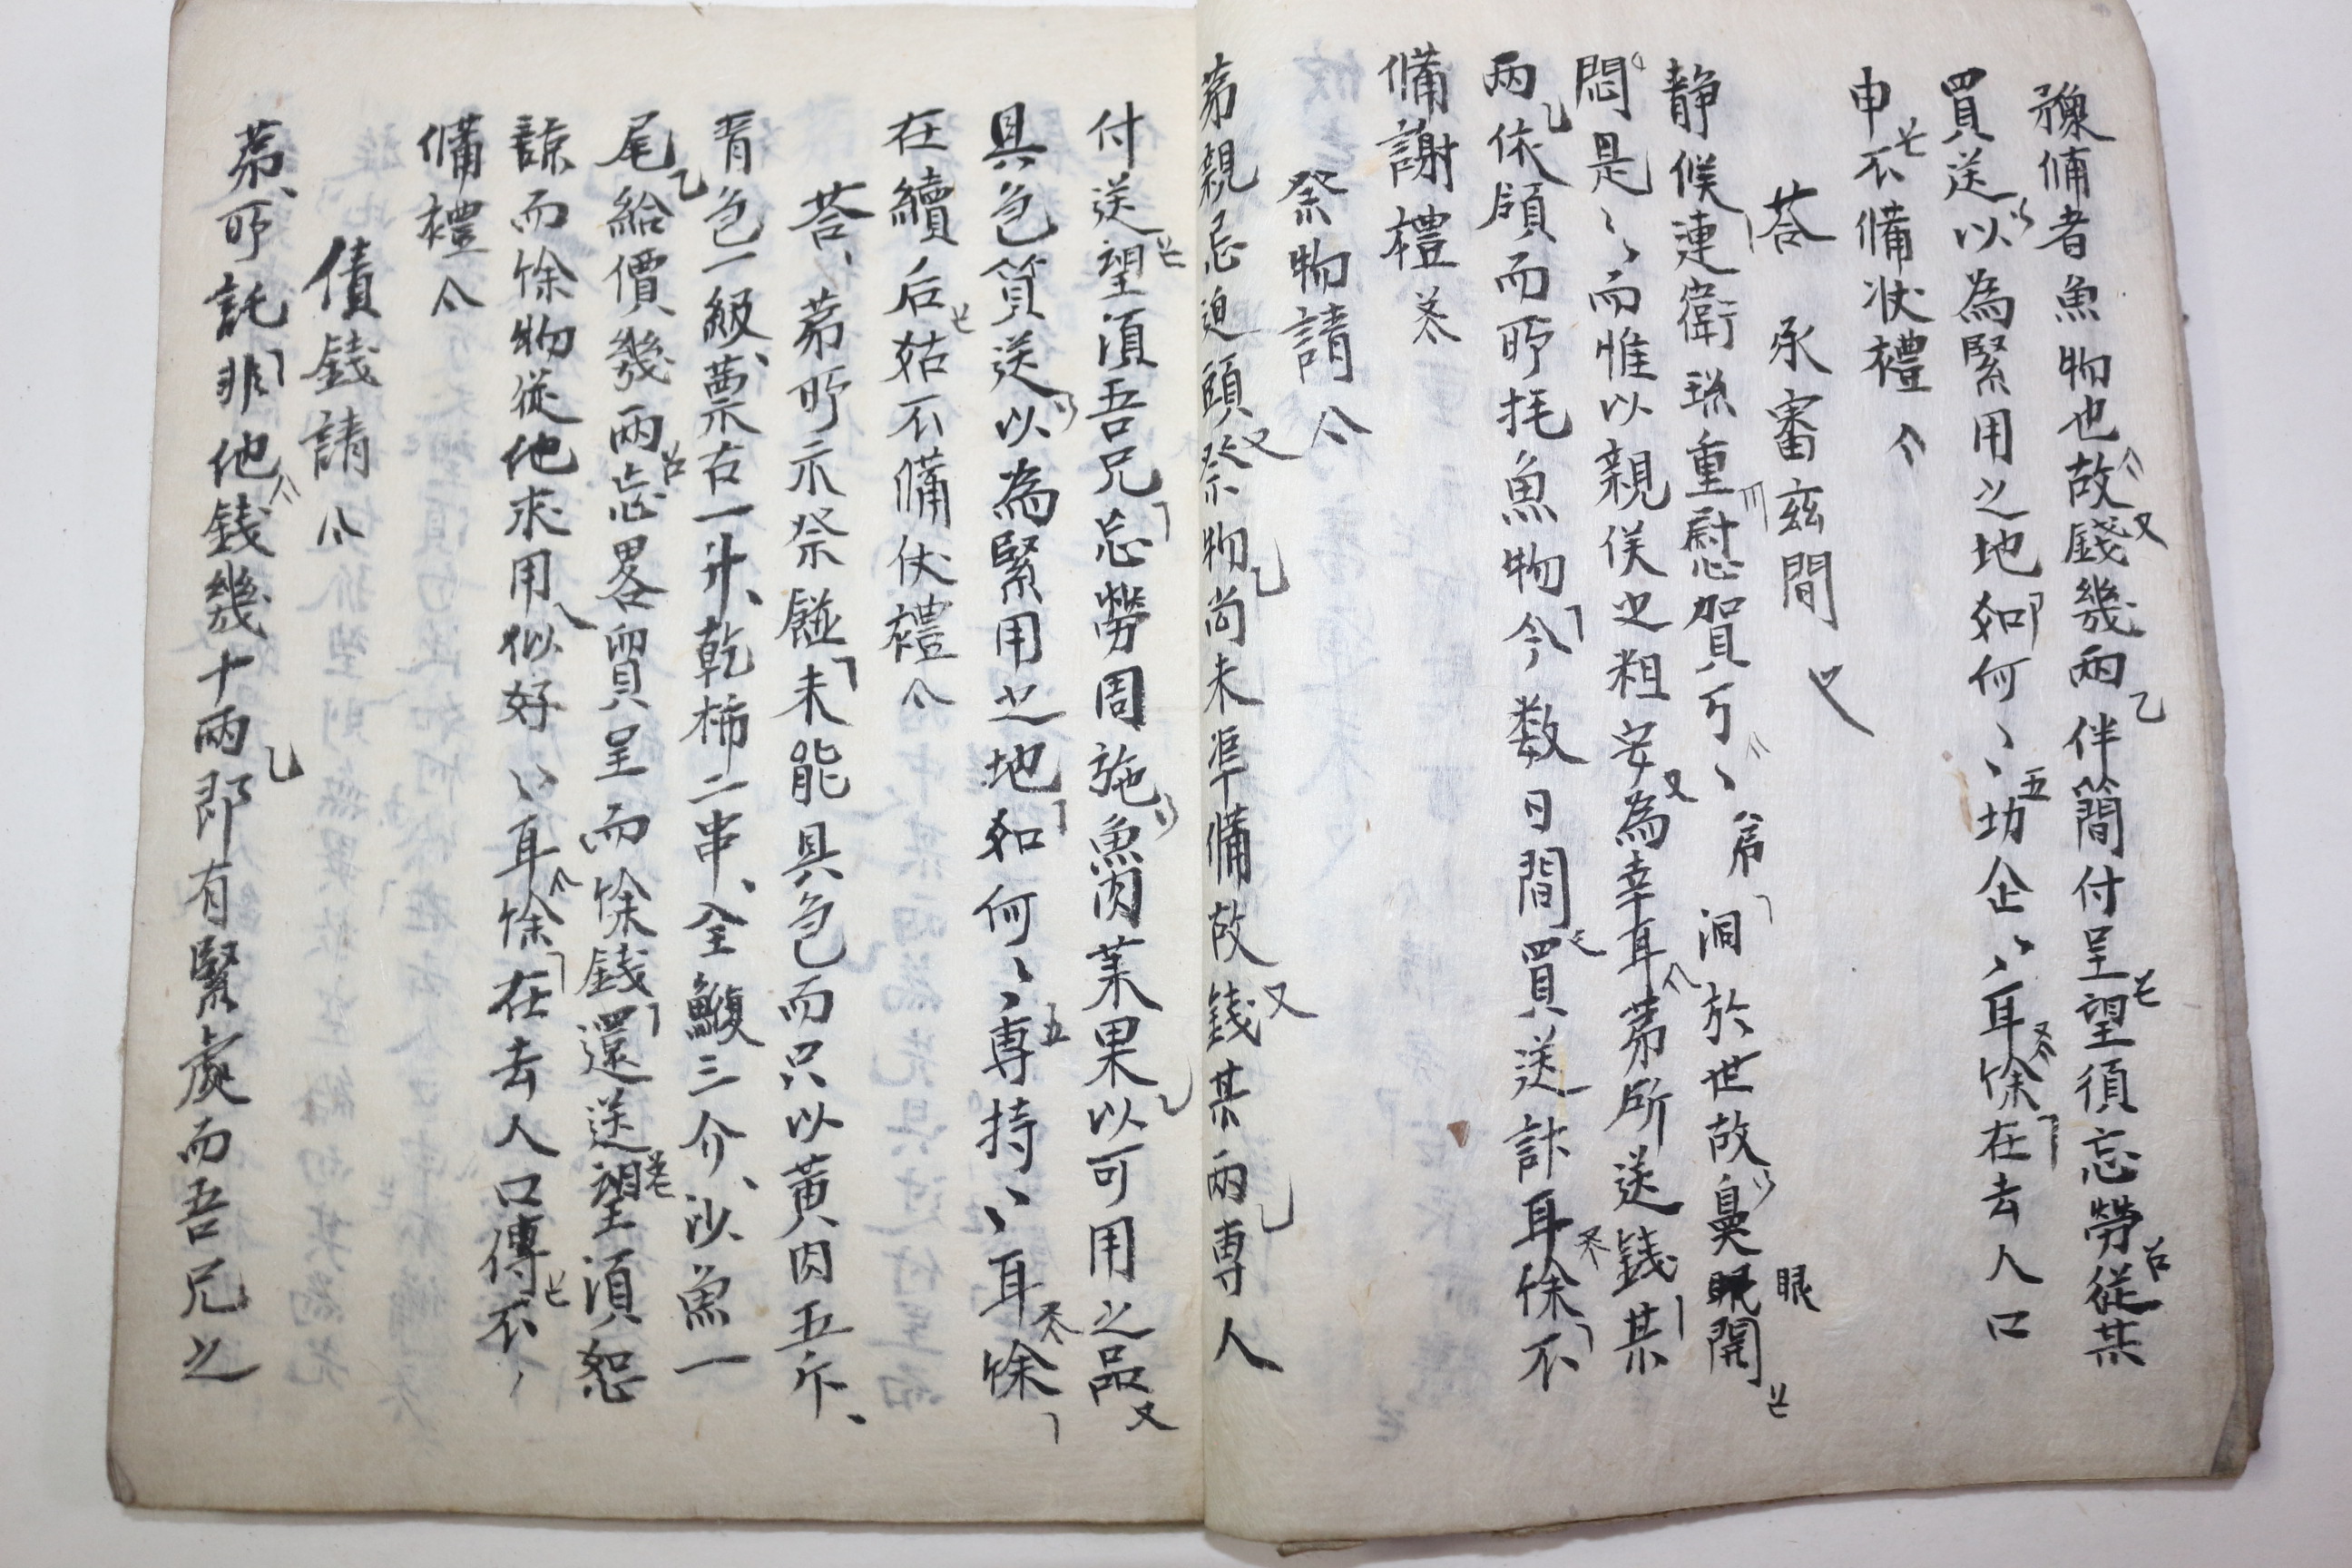 豫備者魚物也故錢幾兩伴簡付呈望須忘勞從某
買送以為緊用之地如何〻坊企〻耳餘在去人口
申不備狀禮
答 承審茲間
靜候連衛珎重慰賀万〻弟 洞於世故鼻眼開
眼
悶是〻而惟以親候之粗安為幸耳弟所送錢某
兩依領而所托魚物今数日間買送計耳餘不
備謝禮
祭物請
弟親忌迫頭祭物尚未準備故錢某兩專人
付送望須吾兄忘勞周施魚肉菓果以可用之品
具色貿送以為緊用之地如何〻專持〻耳餘
在續后姑不備伏禮
答 弟所示祭饌未能具色而只以黃肉五斤
胥色一級藁古一升乾柿二串全鰒三介沙魚一
尾給價幾兩忘畧貿呈而餘錢還送望須恕
諒而餘物從他求用似好〻耳餘在去人口傳不
備禮
債錢請
弟所託非他錢幾十兩即有緊處而吾兄之